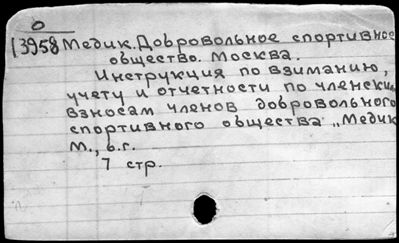 О
13958 Медик. Добровольное спортивное
общество. Москва.
Инструкция по взиманию,
учету и отчетности по членским
взносам членов добровольного
спортивного общества „Медик
М., б.г.
7 стр.